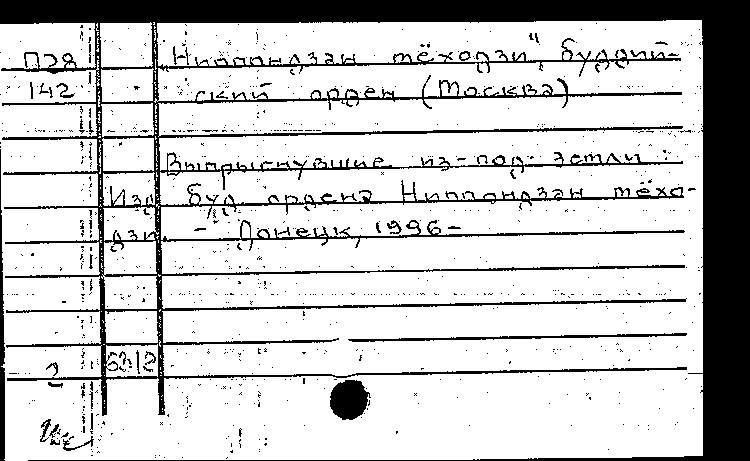 П28 „Ниппондзан мёходзи“, буддий-
142 ский орден (Москва)
Выпрыгнувшие из-под земли :
Изд. буд. ордена Ниппондзан мёхо-
дзи. - Донецк, 1996-
2